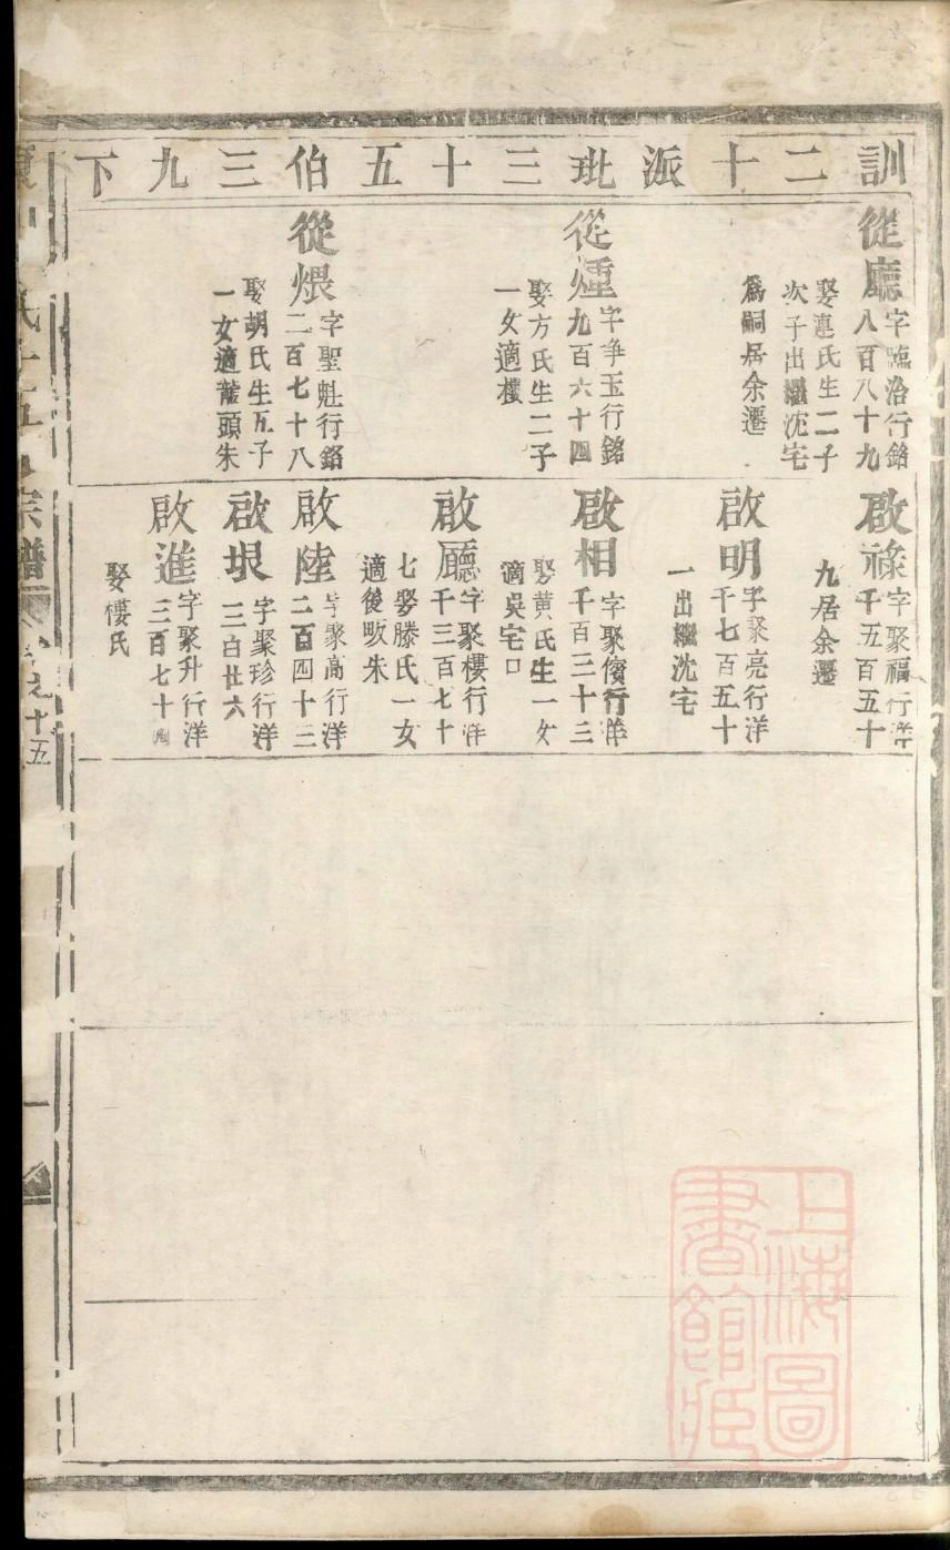 訓二十派玭三十五伯三九下
從廳
字臨治行銘
八百八十九
娶連氏生二子
次子出繼沈宅
為嗣居余遷
從煄
字爭玉行銘
九百六十四
娶方氏生二子
一女適樓
從煨
字聖魁行銘
二百七十八
娶胡氏生五子
一女適蘢頭朱
啟祿
字聚福行洋
千五百五十
九居余遷
啟明
字聚亮行洋
千七百五十
一出繼沈宅
啟相
字聚俊行洋
千百三十三
娶黄氏生一女
適吳宅口
啟廳
字聚樓行洋
千三百七十
七娶滕氏一女
適後畈朱
啟陸
字聚高行洋
二百四十三
啟垠
字聚珍行洋
三百廿六
啟進
字聚升行洋
三百七十四
娶樓氏
宗譜
十五
上海圖
書館藏